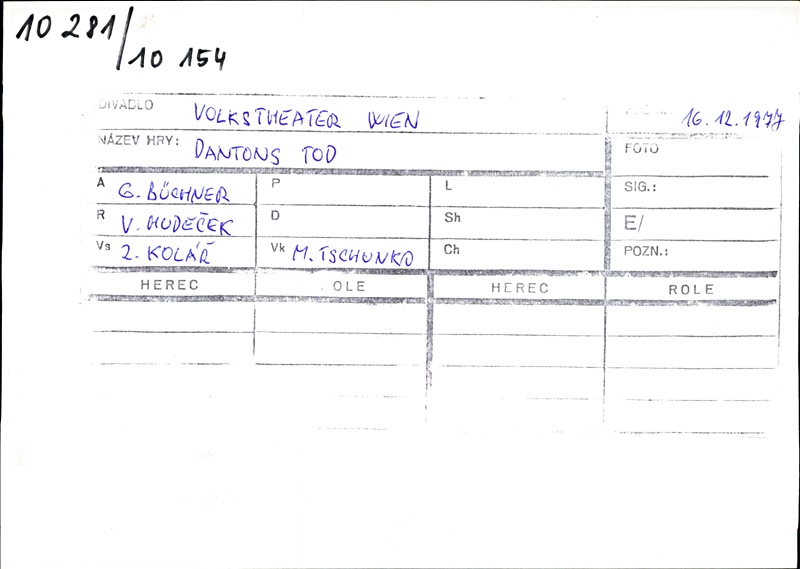 10 281/
10 154
DIVADLO VOLKSTHEATER WIEN 16.12.1977
NÁZEV HRY: DANTONS TOD FOTO
A G. BÜCHNER P L SIG.:
R V. HUDEČEK D Sh E/
Vs Z. KOLÁŘ Vk M. TSCHUNKO Ch POZN.:
HEREC OLE HEREC ROLE